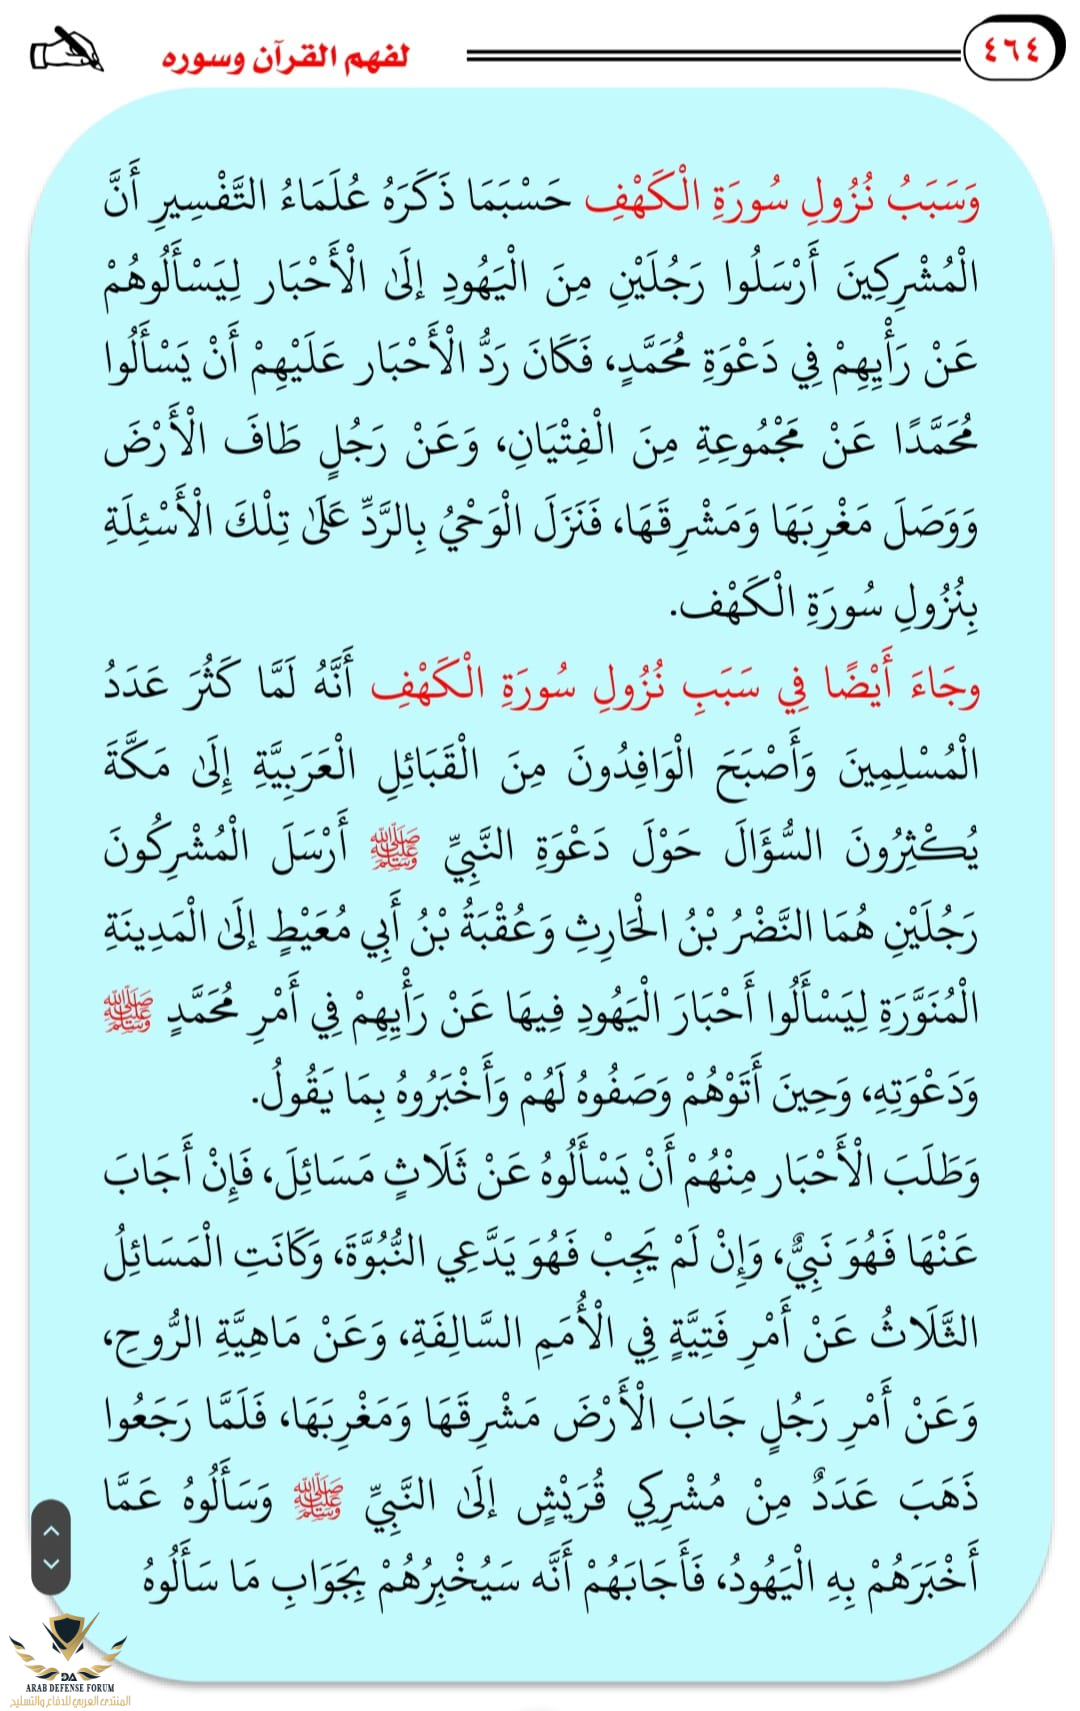 ٤٦٤
لفهم القرآن وسوره
وَسَبَبُ نُزُولِ سُورَةِ الْكَهْفِ حَسْبَمَا ذَكَرَهُ عُلَمَاءُ التَّفْسِيرِ أَنَّ
الْمُشْرِكِينَ أَرْسَلُوا رَجُلَيْنِ مِنَ الْيَهُودِ إلَىٰ الْأَحْبَار لِيَسْأَلُوهُمْ
عَنْ رَأْيِهِمْ فِي دَعْوَةِ مُحَمَّدٍ، فَكَانَ رَدُّ الْأَحْبَار عَلَيْهِمْ أَنْ يَسْأَلُوا
مُحَمَّدًا عَنْ مَجْمُوعِةِ مِنَ الْفِتْيَانِ، وَعَنْ رَجُلٍ طَافَ الْأَرْضَ
وَوَصَلَ مَغْرِبَهَا وَمَشْرِقَهَا، فَنَزَلَ الْوَحْيُ بِالرَّدِّ عَلَىٰ تِلْكَ الْأَسْئِلَةِ
بِنُزُولِ سُورَةِ الْكَهْف.
وجَاءَ أَيْضًا فِي سَبَبِ نُزُولِ سُورَةِ الْكَهْفِ أَنَّهُ لَمَّا كَثُرَ عَدَدُ
الْمُسْلِمِينَ وَأَصْبَحَ الْوَافِدُونَ مِنَ الْقَبَائِلِ الْعَرَبِيَّةِ إِلَىٰ مَكَّةَ
يُكْثِرُونَ السُّؤَالَ حَوْلَ دَعْوَةِ النَّبِيِّ ﷺ أَرْسَلَ الْمُشْرِكُونَ
رَجُلَيْنِ هُمَا النَّضْرُ بْنُ الْحَارِثِ وَعُقْبَةُ بْنُ أَبِي مُعَيْطٍ إلَىٰ الْمَدِينَةِ
الْمُنَوَّرَةِ لِيَسْأَلُوا أَحْبَارَ الْيَهُودِ فِيهَا عَنْ رَأْيِهِمْ فِي أَمْرِ مُحَمَّدٍ ﷺ
وَدَعْوَتِهِ، وَحِينَ أَتَوْهُمْ وَصَفُوهُ لَهُمْ وَأَخْبَرُوهُ بِمَا يَقُولُ.
وَطَلَبَ الْأَحْبَار مِنْهُمْ أَنْ يَسْأَلُوهُ عَنْ ثَلَاثٍ مَسَائِلَ، فَإِنْ أَجَابَ
عَنْهَا فَهُوَ نَبِيٌّ، وَإِنْ لَمْ يَجِبْ فَهُوَ يَدَّعِي النُّبُوَّةَ، وَكَانَتِ الْمَسَائِلُ
الثَّلَاثُ عَنْ أَمْرِ فَتِيَّةٍ فِي الْأُمَمِ السَّالِفَةِ، وَعَنْ مَاهِيَّةِ الرُّوحِ،
وَعَنْ أَمْرِ رَجُلٍ جَابَ الْأَرْضَ مَشْرِقَهَا وَمَغْرِبَهَا، فَلَمَّا رَجَعُوا
ذَهَبَ عَدَدٌ مِنْ مُشْرِكِي قُرَيْشٍ إلَىٰ النَّبِيِّ ﷺ وَسَأَلُوهُ عَمَّا
أَخْبَرَهُمْ بِهِ الْيَهُودُ، فَأَجَابَهُمْ أَنَّه سَيُخْبِرُهُمْ بِجَوَابِ مَا سَأَلُوهُ
DA
ARAB DEFENSE FORUM
المنتدى العربي للدفاع والتسليح